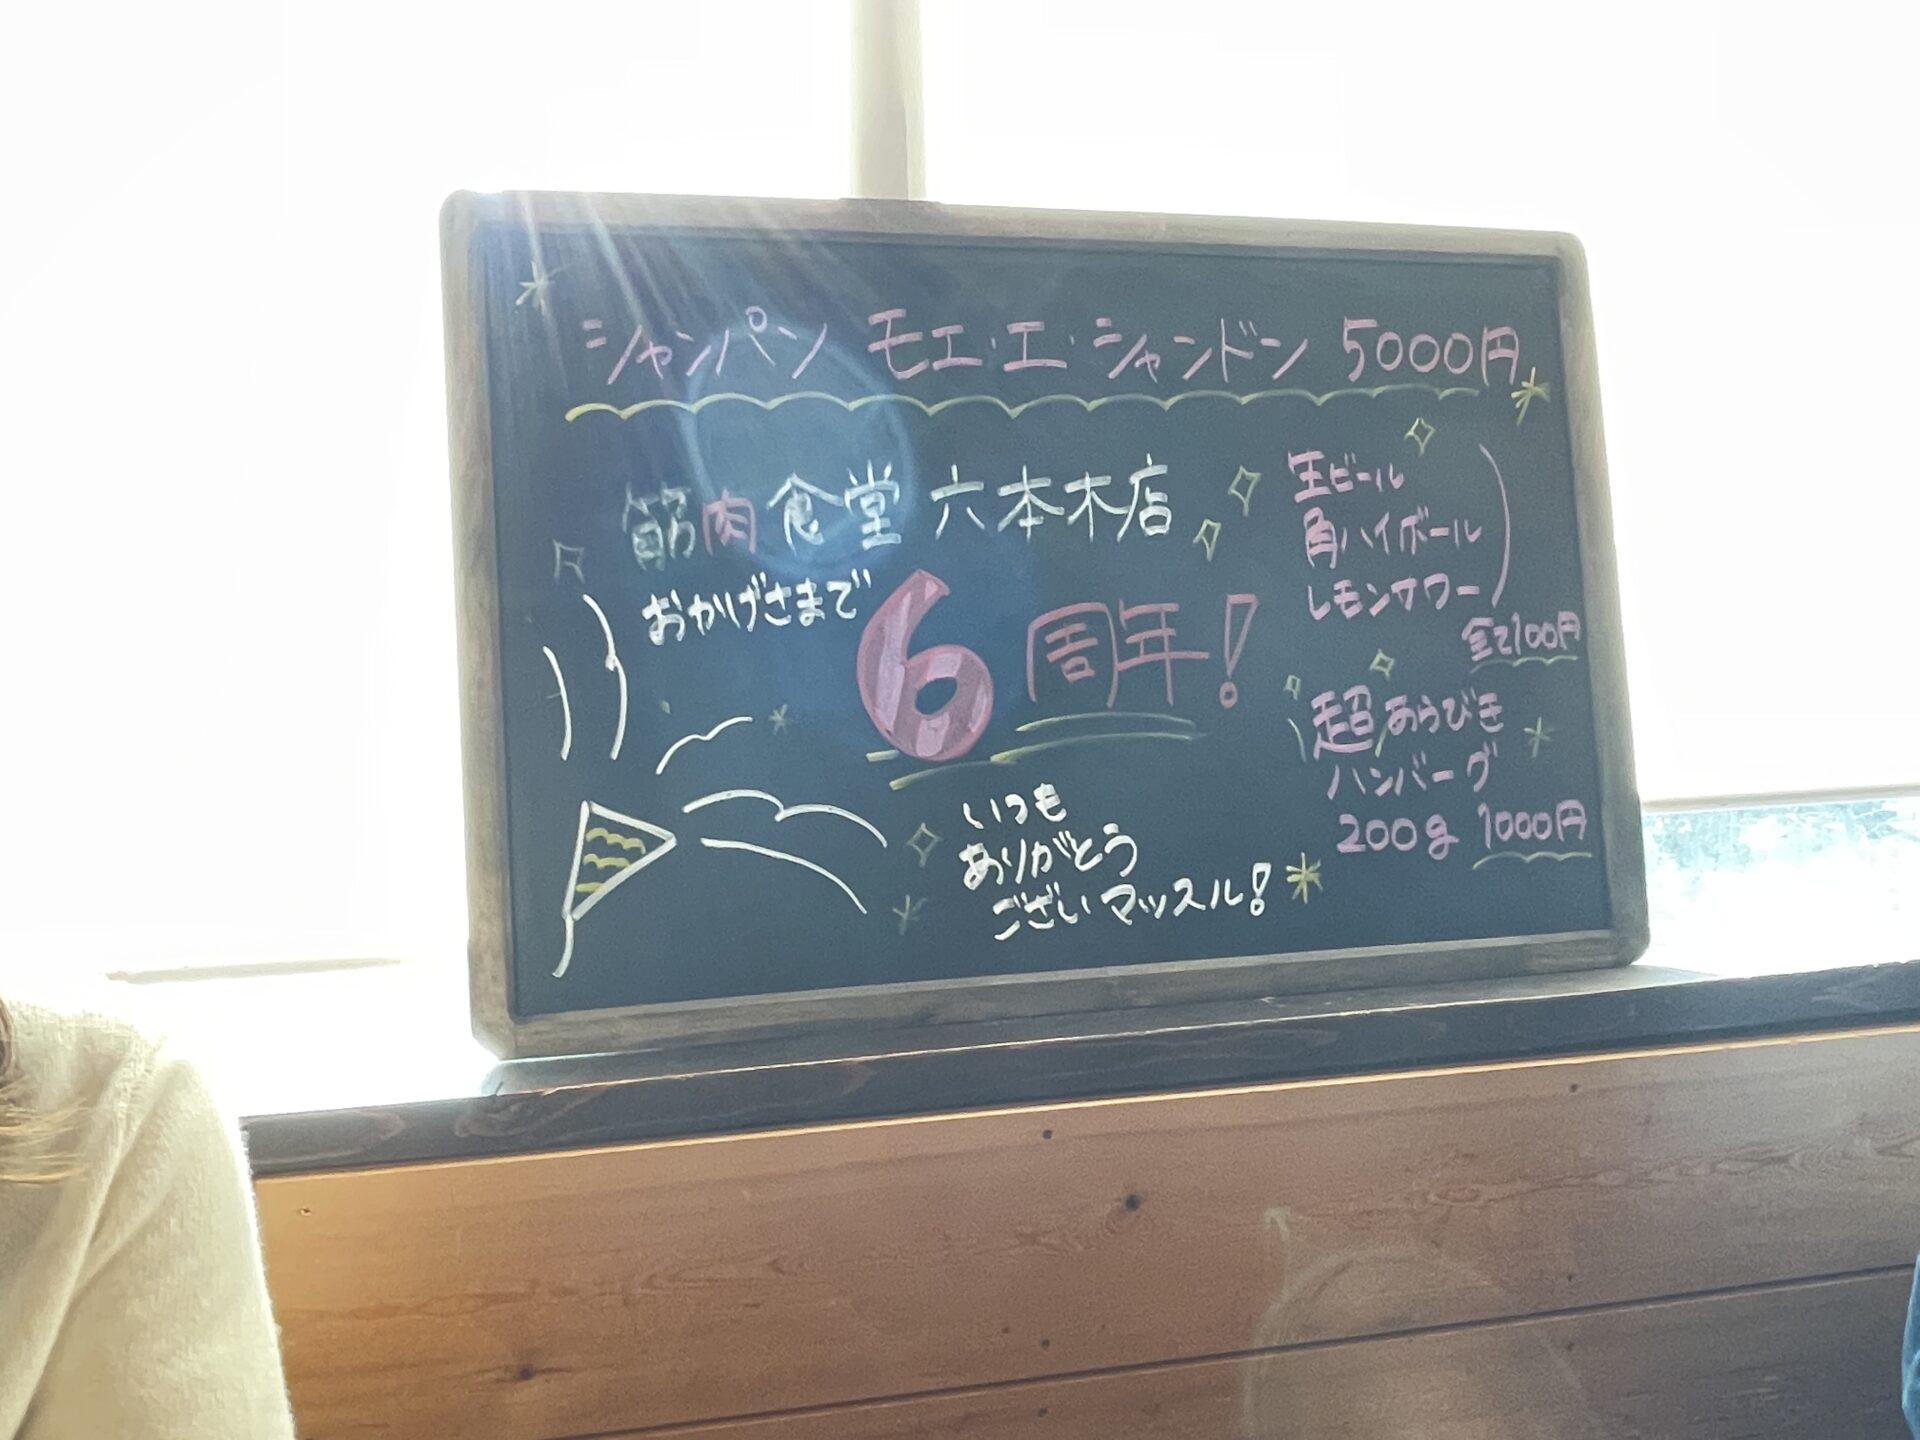 シャンパン モエ・エ・シャンドン 5000円
筋肉食堂 六本木店
おかげさまで
6周年!
いつも
ありがとう
ございマッスル!
生ビール
角ハイボール
レモンサワー
全て100円
超あらびき
ハンバーグ
200g 1000円